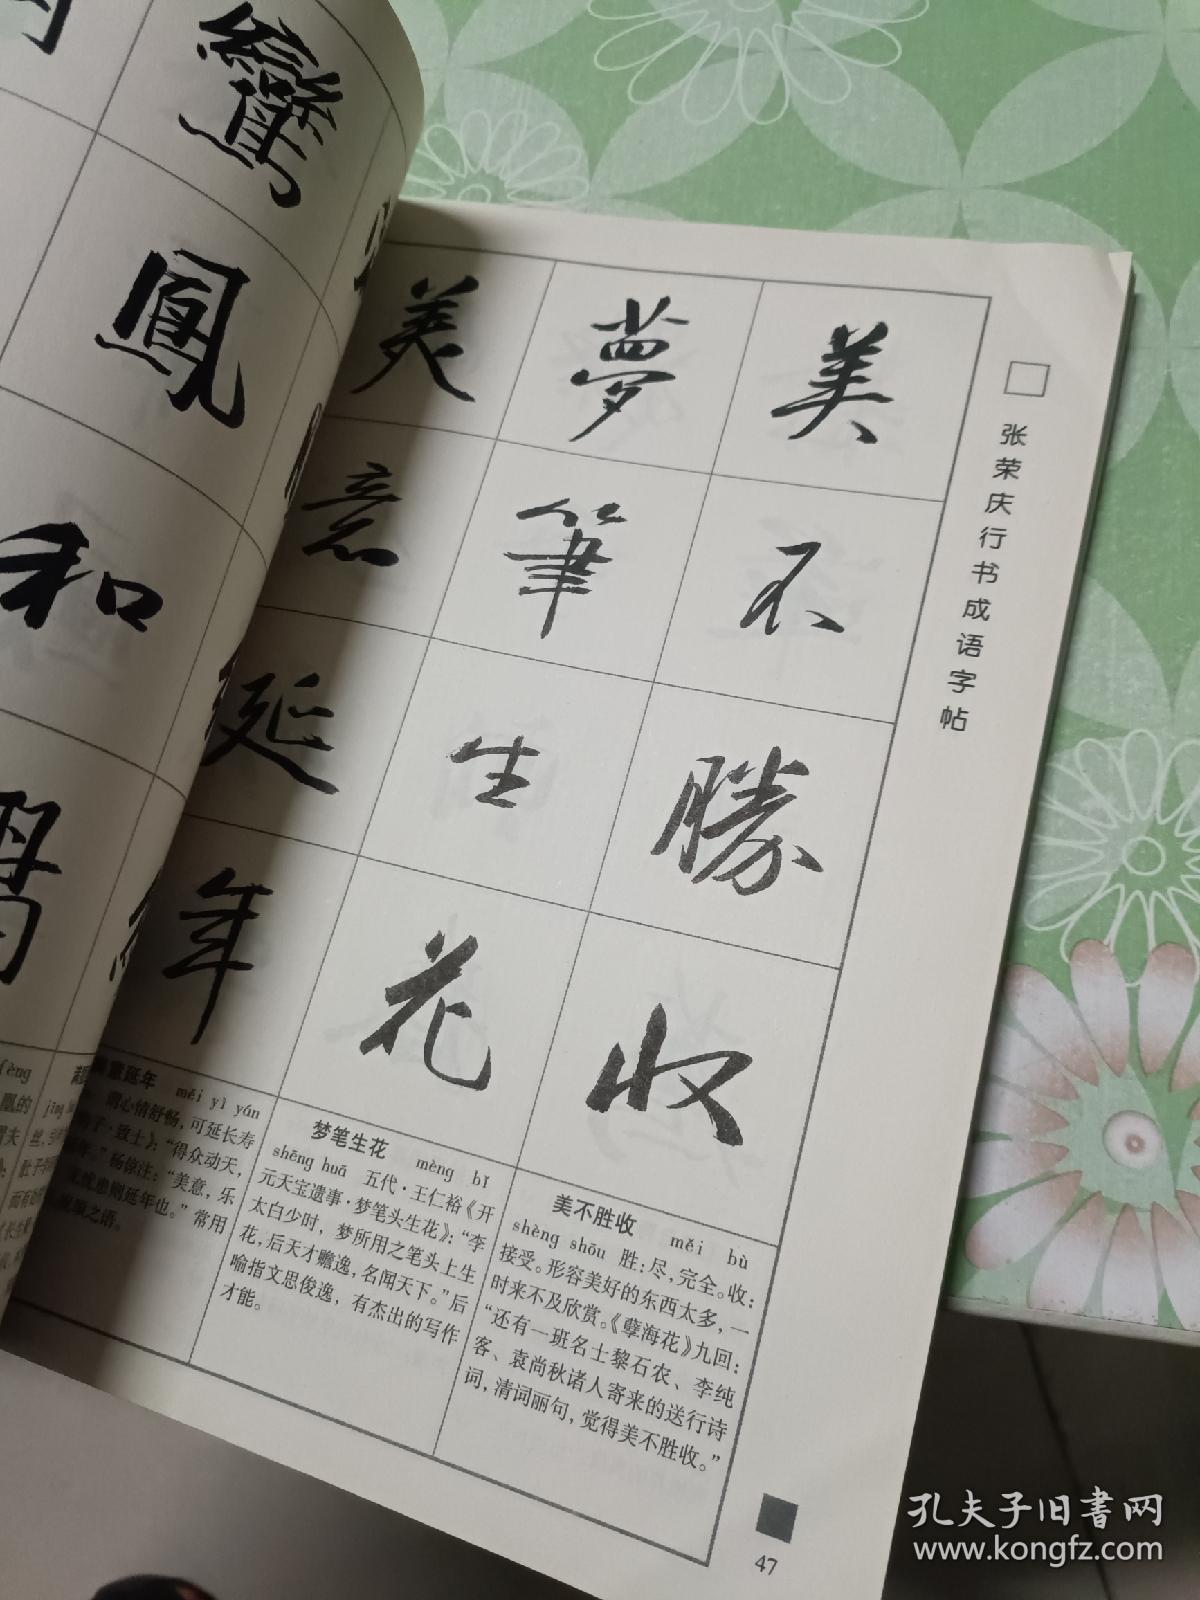 张荣庆行书成语字帖
美不勝收
夢筆生花
美意延年
鸞
鳳
和
美不胜收 měi bù
shèng shōu 胜：尽，完全。收：
接受。形容美好的东西太多，一
时来不及欣赏。《孽海花》九回：
“还有一班名士黎石农、李纯
客、袁尚秋诸人寄来的送行诗
词，清词丽句，觉得美不胜收。”
梦笔生花 mèng bǐ
shēng huā 五代·王仁裕《开
元天宝遗事·梦笔头生花》：“李
太白少时，梦所用之笔头上生
花，后天才赡逸，名闻天下。”后
喻指文思俊逸，有杰出的写作
才能。
意延年 měi yì yán
谓心情舒畅，可延长寿
子·致士》：“得众动天，
年。”杨倞注：“美意，乐
无忧患则延年也。”常用
颂之语。
47
孔夫子旧书网
www.kongfz.com